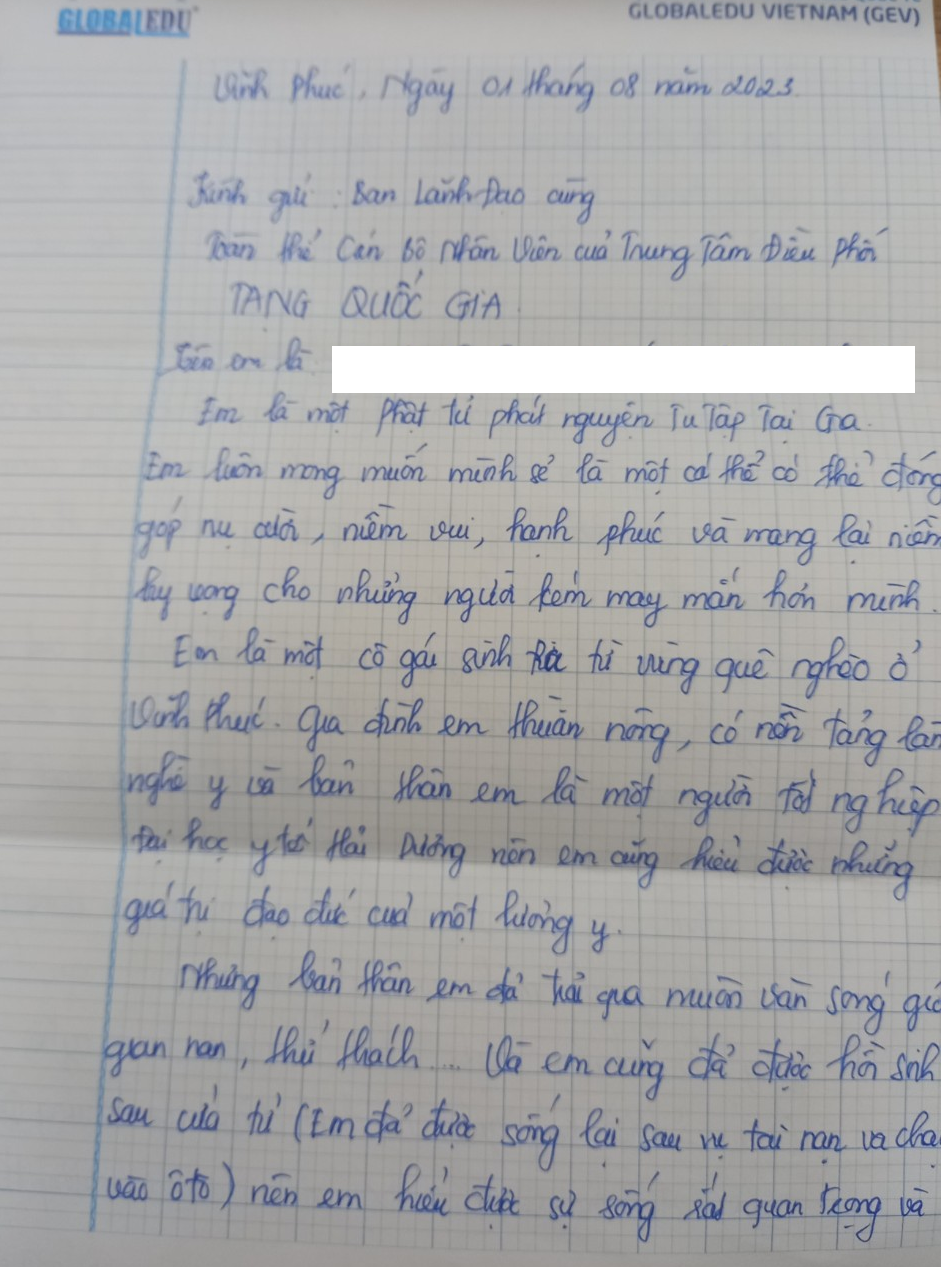 GLOBALEDU
GLOBALEDU VIETNAM (GEV)
Vĩnh Phúc, Ngày 01 tháng 08 năm 2023.
Kính gửi : Ban Lãnh Đạo cùng
Toàn thể Cán bộ Nhân Viên của Trung Tâm Điều Phối
TẠNG QUỐC GIA.
Tên em là
Em là một Phật tử phát nguyện Tu Tập Tại Gia.
Em luôn mong muốn mình sẽ là một cá thể có thể đóng
góp nụ cười, niềm vui, hạnh phúc và mang lại niềm
hy vọng cho những người kém may mắn hơn mình.
Em là một cô gái sinh ra từ vùng quê nghèo ở
Vĩnh Phúc. Gia đình em thuần nông, có nền tảng làm
nghề y và bản thân em là một người tốt nghiệp
Đại học y tế Hải Dương nên em cũng hiểu được những
giá trị đạo đức của một lương y.
Nhưng bản thân em đã trải qua muôn vàn sóng gió
gian nan, thử thách... Và em cũng đã được hồi sinh
sau cửa tử (Em đã được sống lại sau vụ tai nạn va chạ
vào ôtô) nên em hiểu được sự sống rất quan trọng và